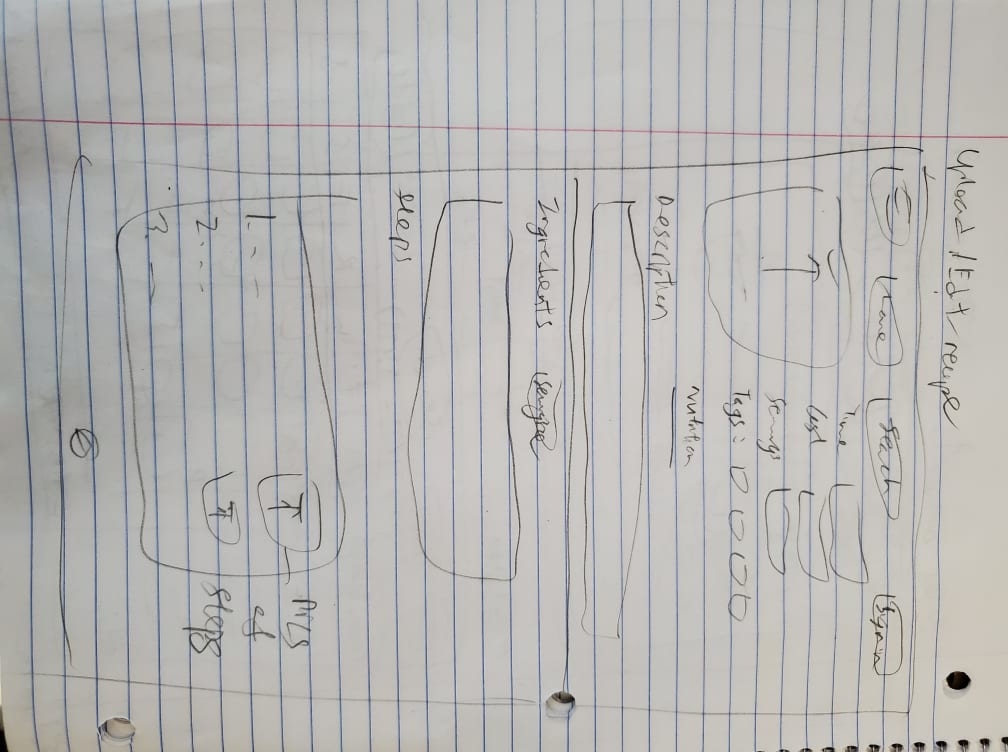 Upload / Edit recipe
Home Search Sign in
Time
Cost
Servings
Tags:
Nutrition
Description
Ingredients
steps
1. - -
2. - - -
3. —
Pics
of
steps